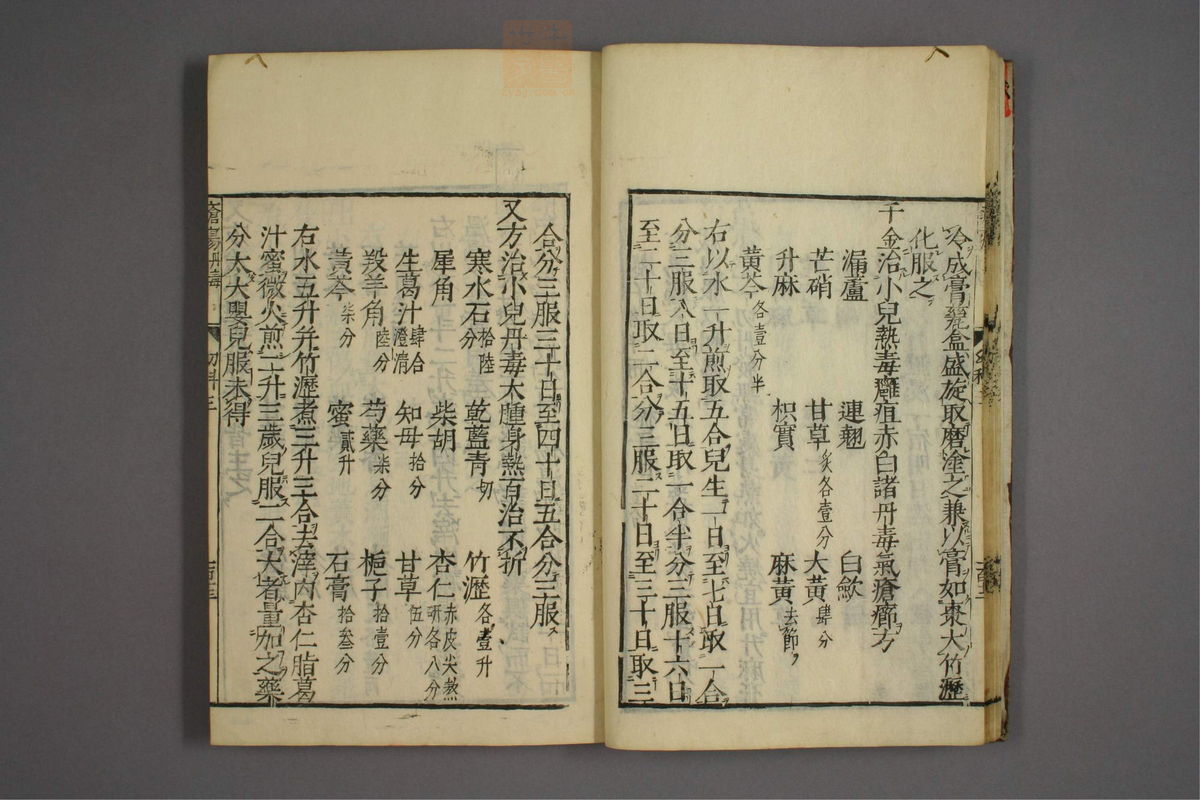 冷成膏瓷盒盛旋取磨塗之兼以膏如棗大竹瀝
化服之
千金治小兒熱毒癰疽赤白諸丹毒氣瘡癤方
漏蘆 連翹 白歛
芒硝 甘草炙各壹分 大黃肆分
升麻 枳實 麻黃去節
黃芩各壹分半
右以水一升煎取五合兒生一日至七日取一合
分三服八日至十五日取一合半分三服十六日
至二十日取二合分三服二十日至三十日取三
合分三服三十日至四十日五合分三服
又方治小兒丹毒大腫身熱百治不折
寒水石拾陸分 乾藍青切 竹瀝各壹升
犀角 柴胡 杏仁赤皮尖熬研各八分
生葛汁肆合澄清 知母拾分 甘草伍分
羖羊角陸分 芍藥柒分 梔子拾壹分
黃芩柒分 蜜貳升 石膏拾叁分
右水五升并竹瀝煮三升三合去滓內杏仁脂葛
汁蜜微火煎二升三歲兒服二合大者量加之藥
分太大嬰兒服未得
幼科三